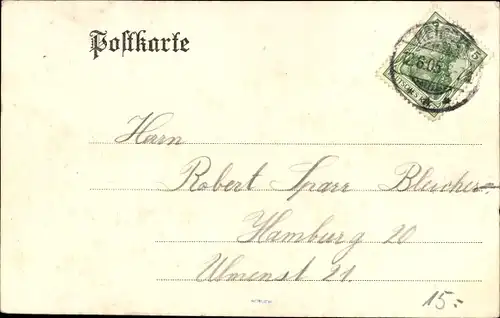 Postkarte
2.6.05
Herrn
Robert Sparr Bleicher
Hamburg 20
Ulmenst 21.
15.-